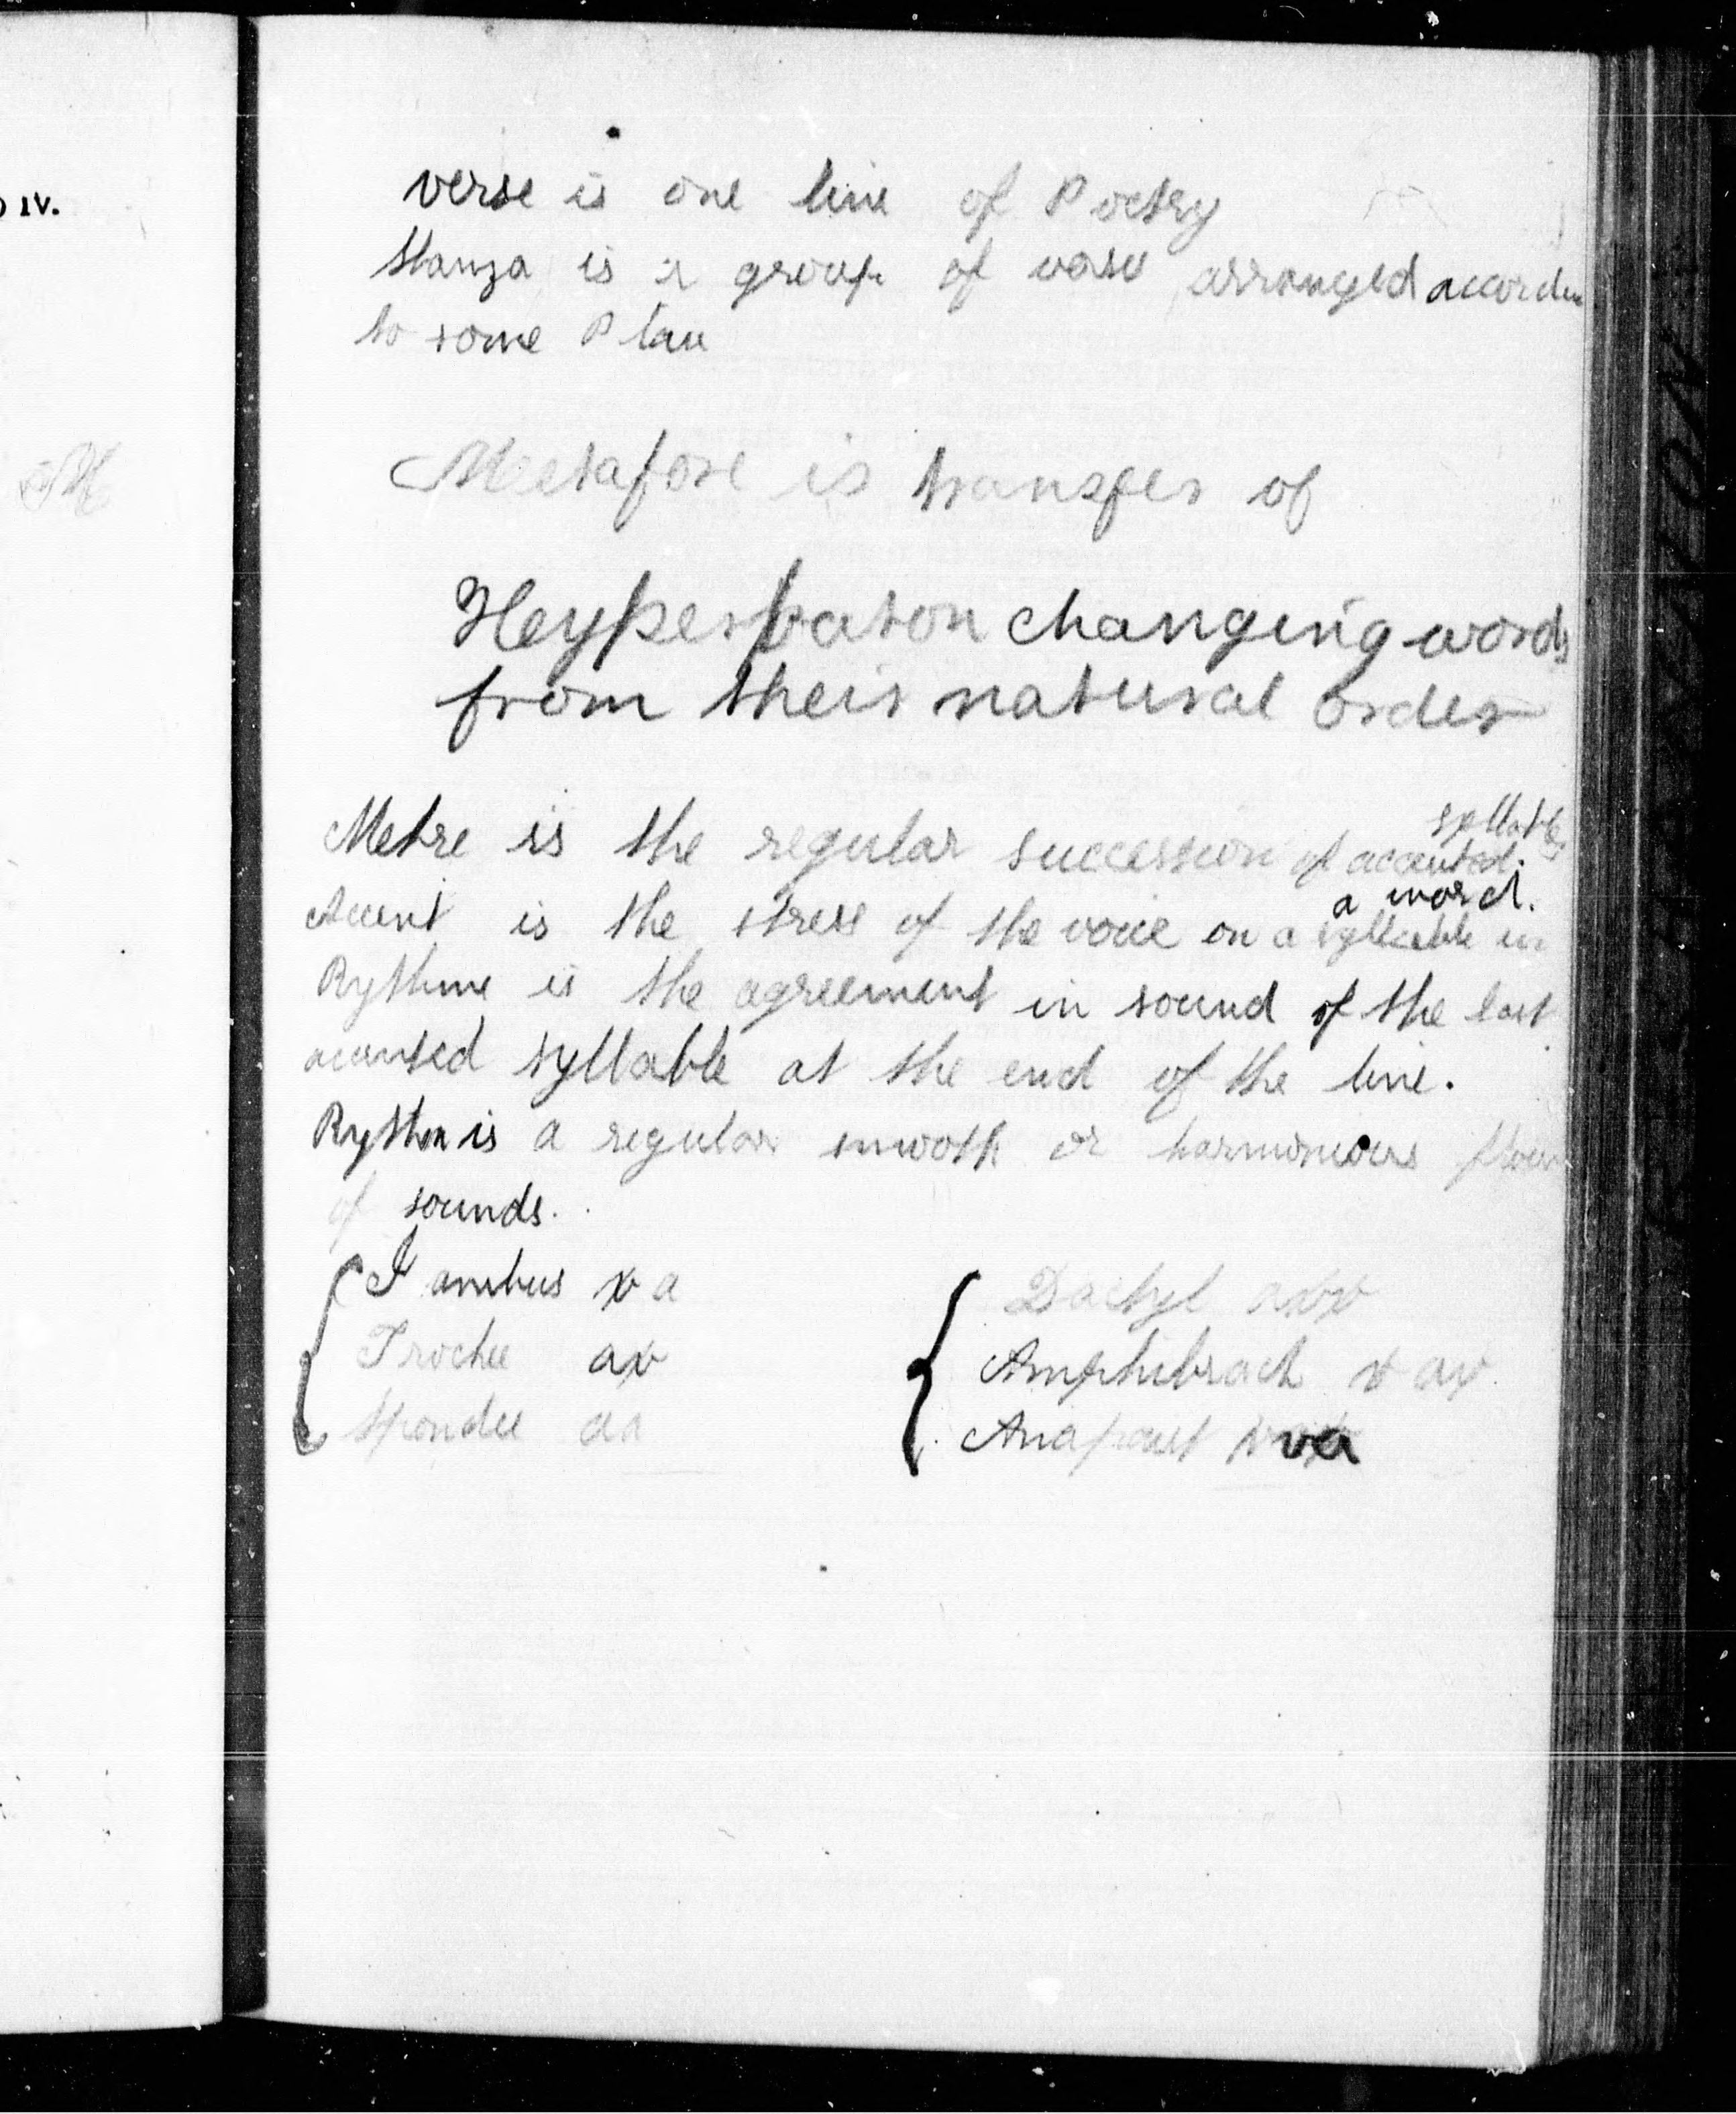 IV.
verse is one line of Poetry
stanza is a group of verse arranged accordin
to some Plan
Metafore is transfer of
Heyperbaton changing words
from their natural order
Metre is the regular succession of accented syllables
Accent is the stress of the voice on a syllable in a word.
Rythme is the agreement in sound of the last
accented syllable at the end of the line.
Rythm is a regular smooth or harmonious flow
of sounds.
Iambus x a
Trochee ax
Spondee aa
Dactyl axx
Amphibrach x ax
Anapaest xxa